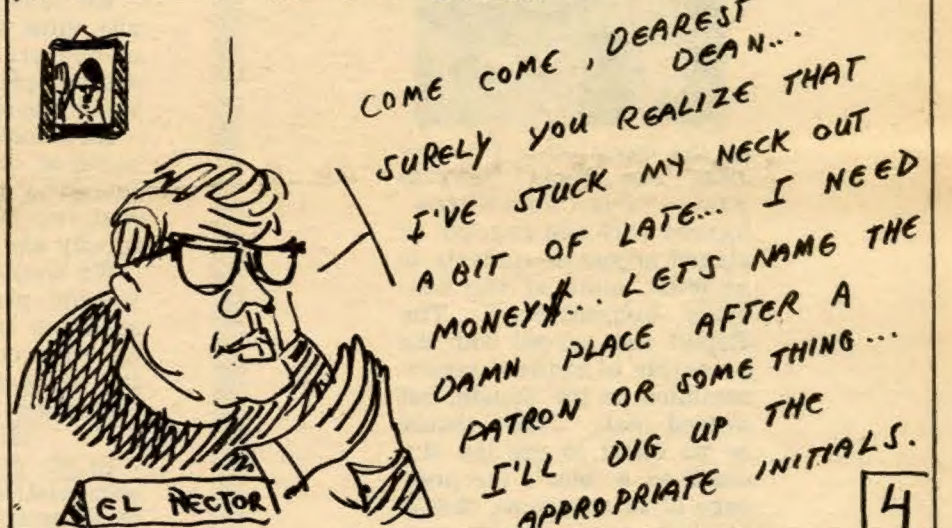 COME COME, DEAREST
DEAN...
SURELY YOU REALIZE THAT
I'VE STUCK MY NECK OUT
A BIT OF LATE... I NEED
MONEY$... LETS NAME THE
DAMN PLACE AFTER A
PATRON OR SOME THING...
I'LL DIG UP THE
APPROPRIATE INITIALS.
EL RECTOR
4